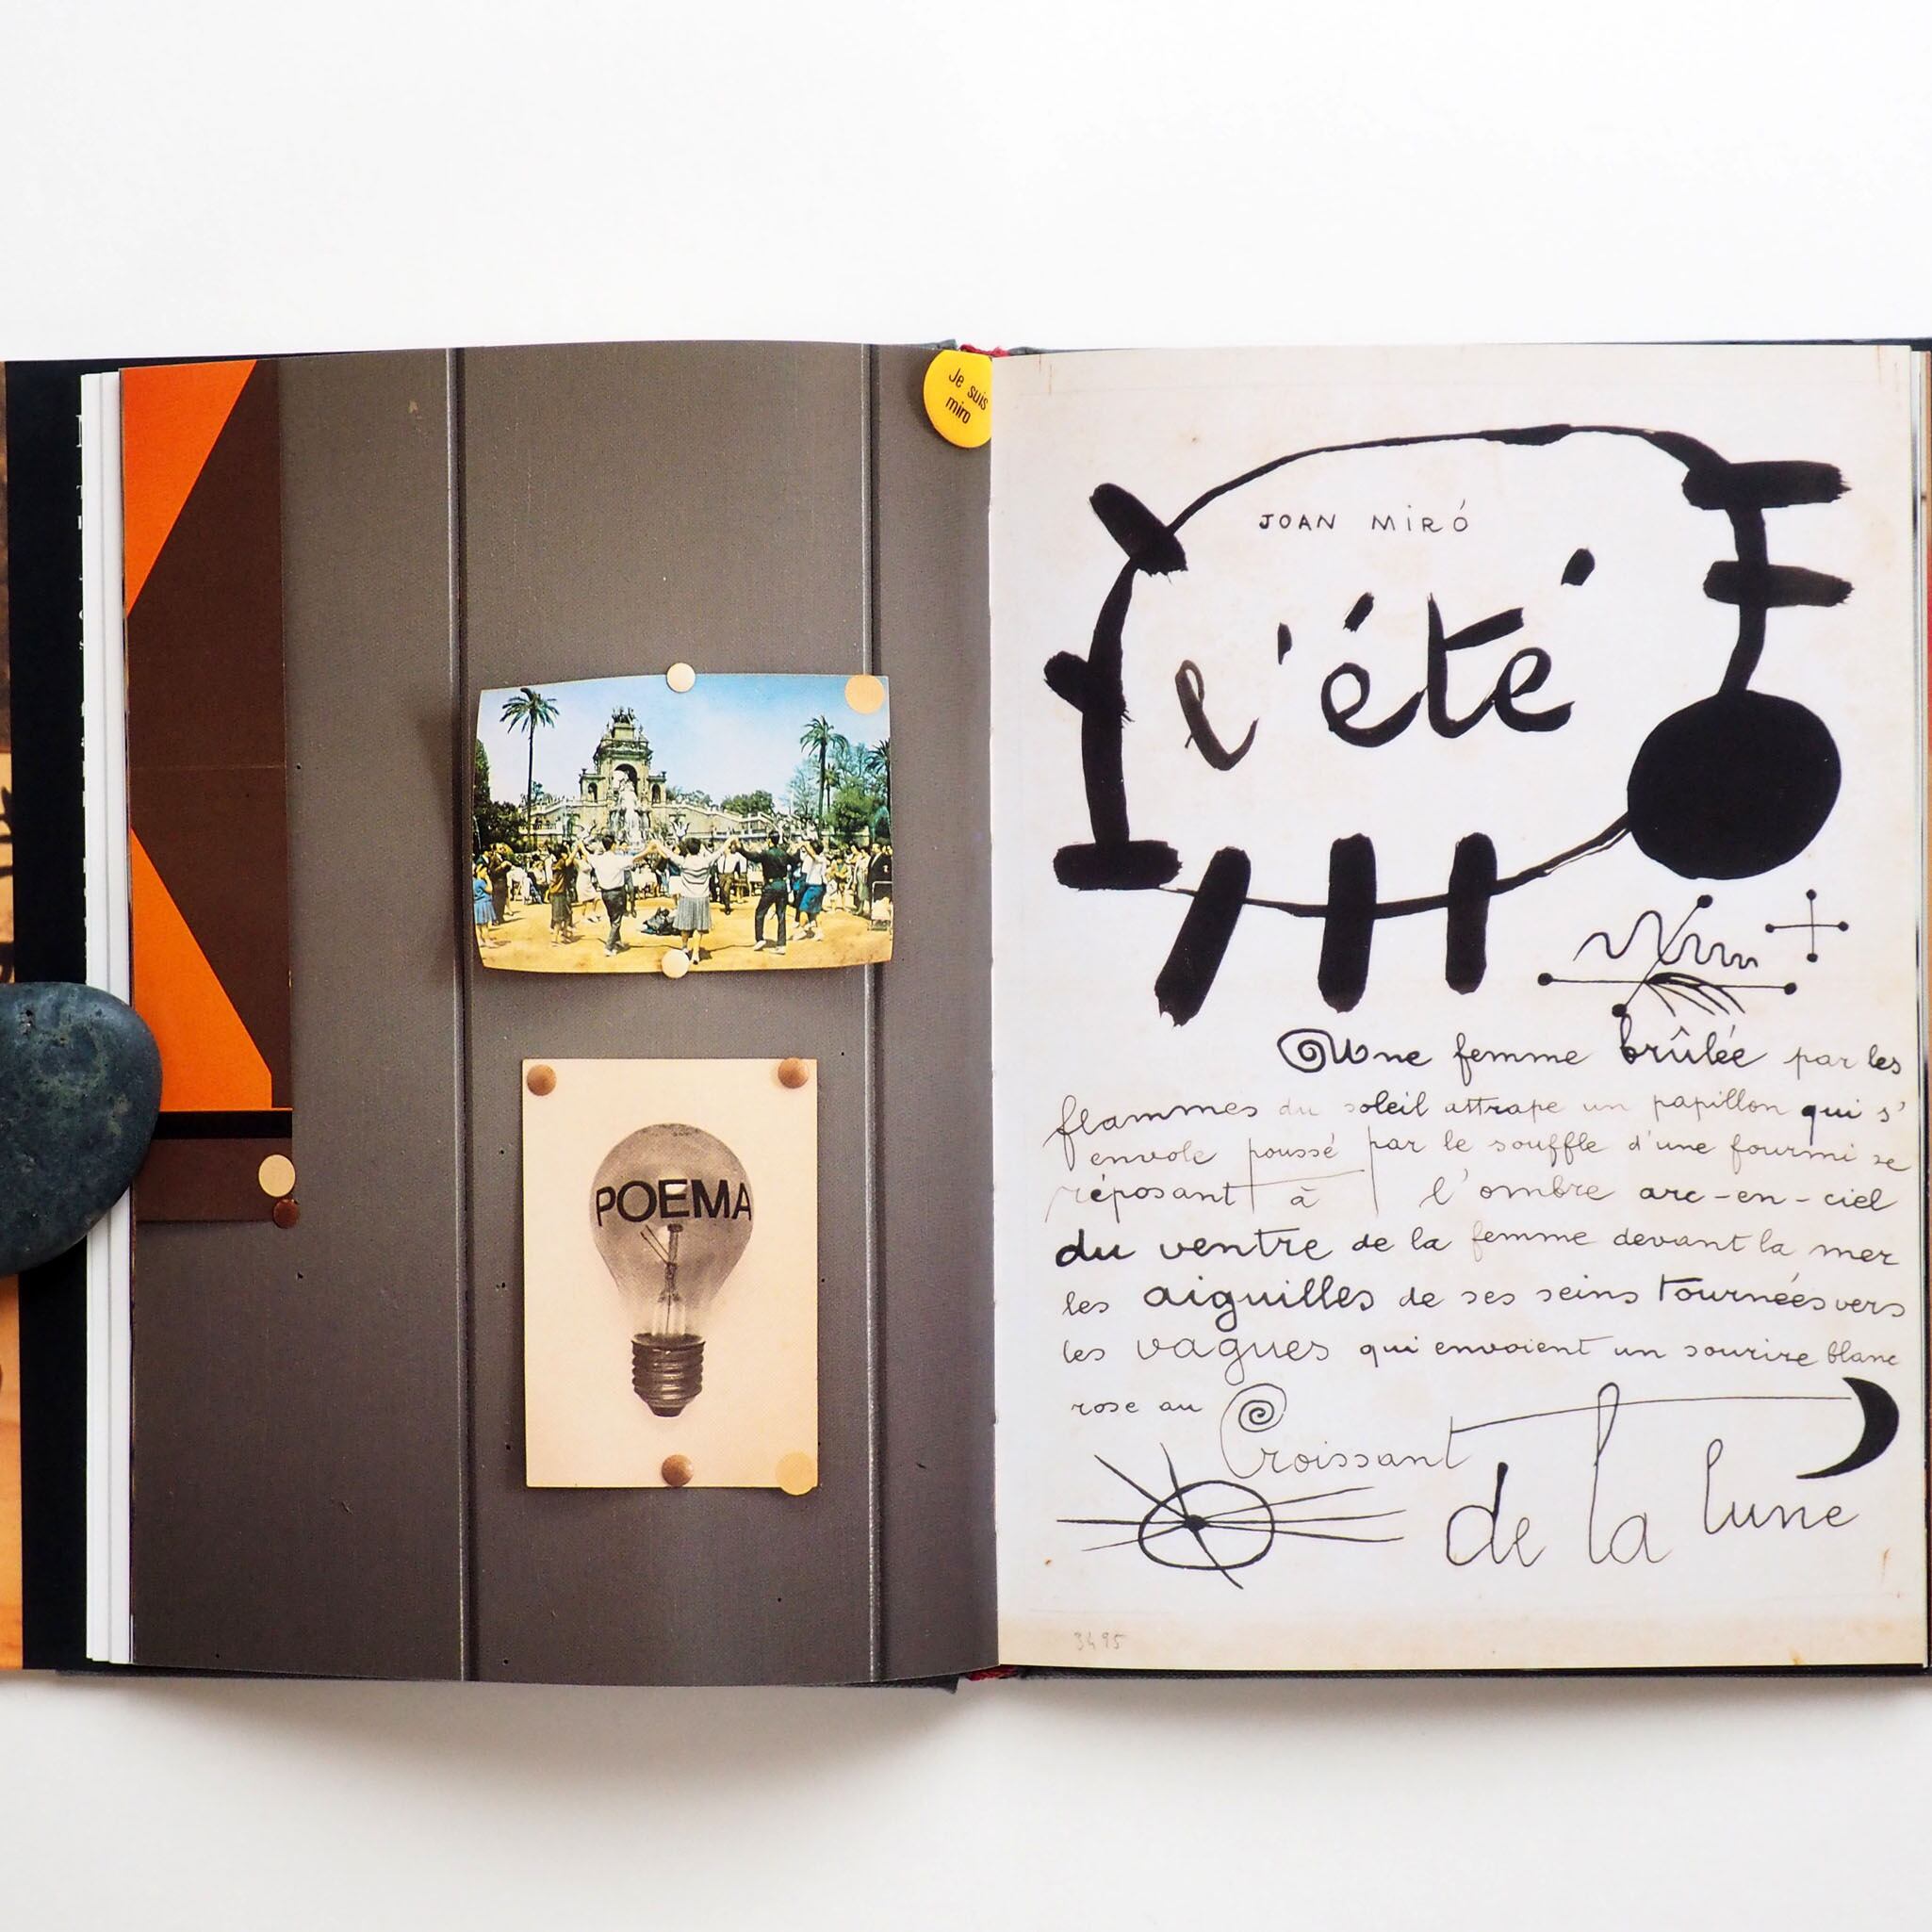 Je suis
miro
POEMA
JOAN MIRÓ
l'été
Une femme brûlée par les
flammes du soleil attrape un papillon qui s'
envole poussé par le souffle d'une fourmi se
réposant à l'ombre arc-en-ciel
du ventre de la femme devant la mer
les aiguilles de ses seins tournées vers
les vagues qui envoient un sourire blanc
rose au
Croissant
de la lune
3495